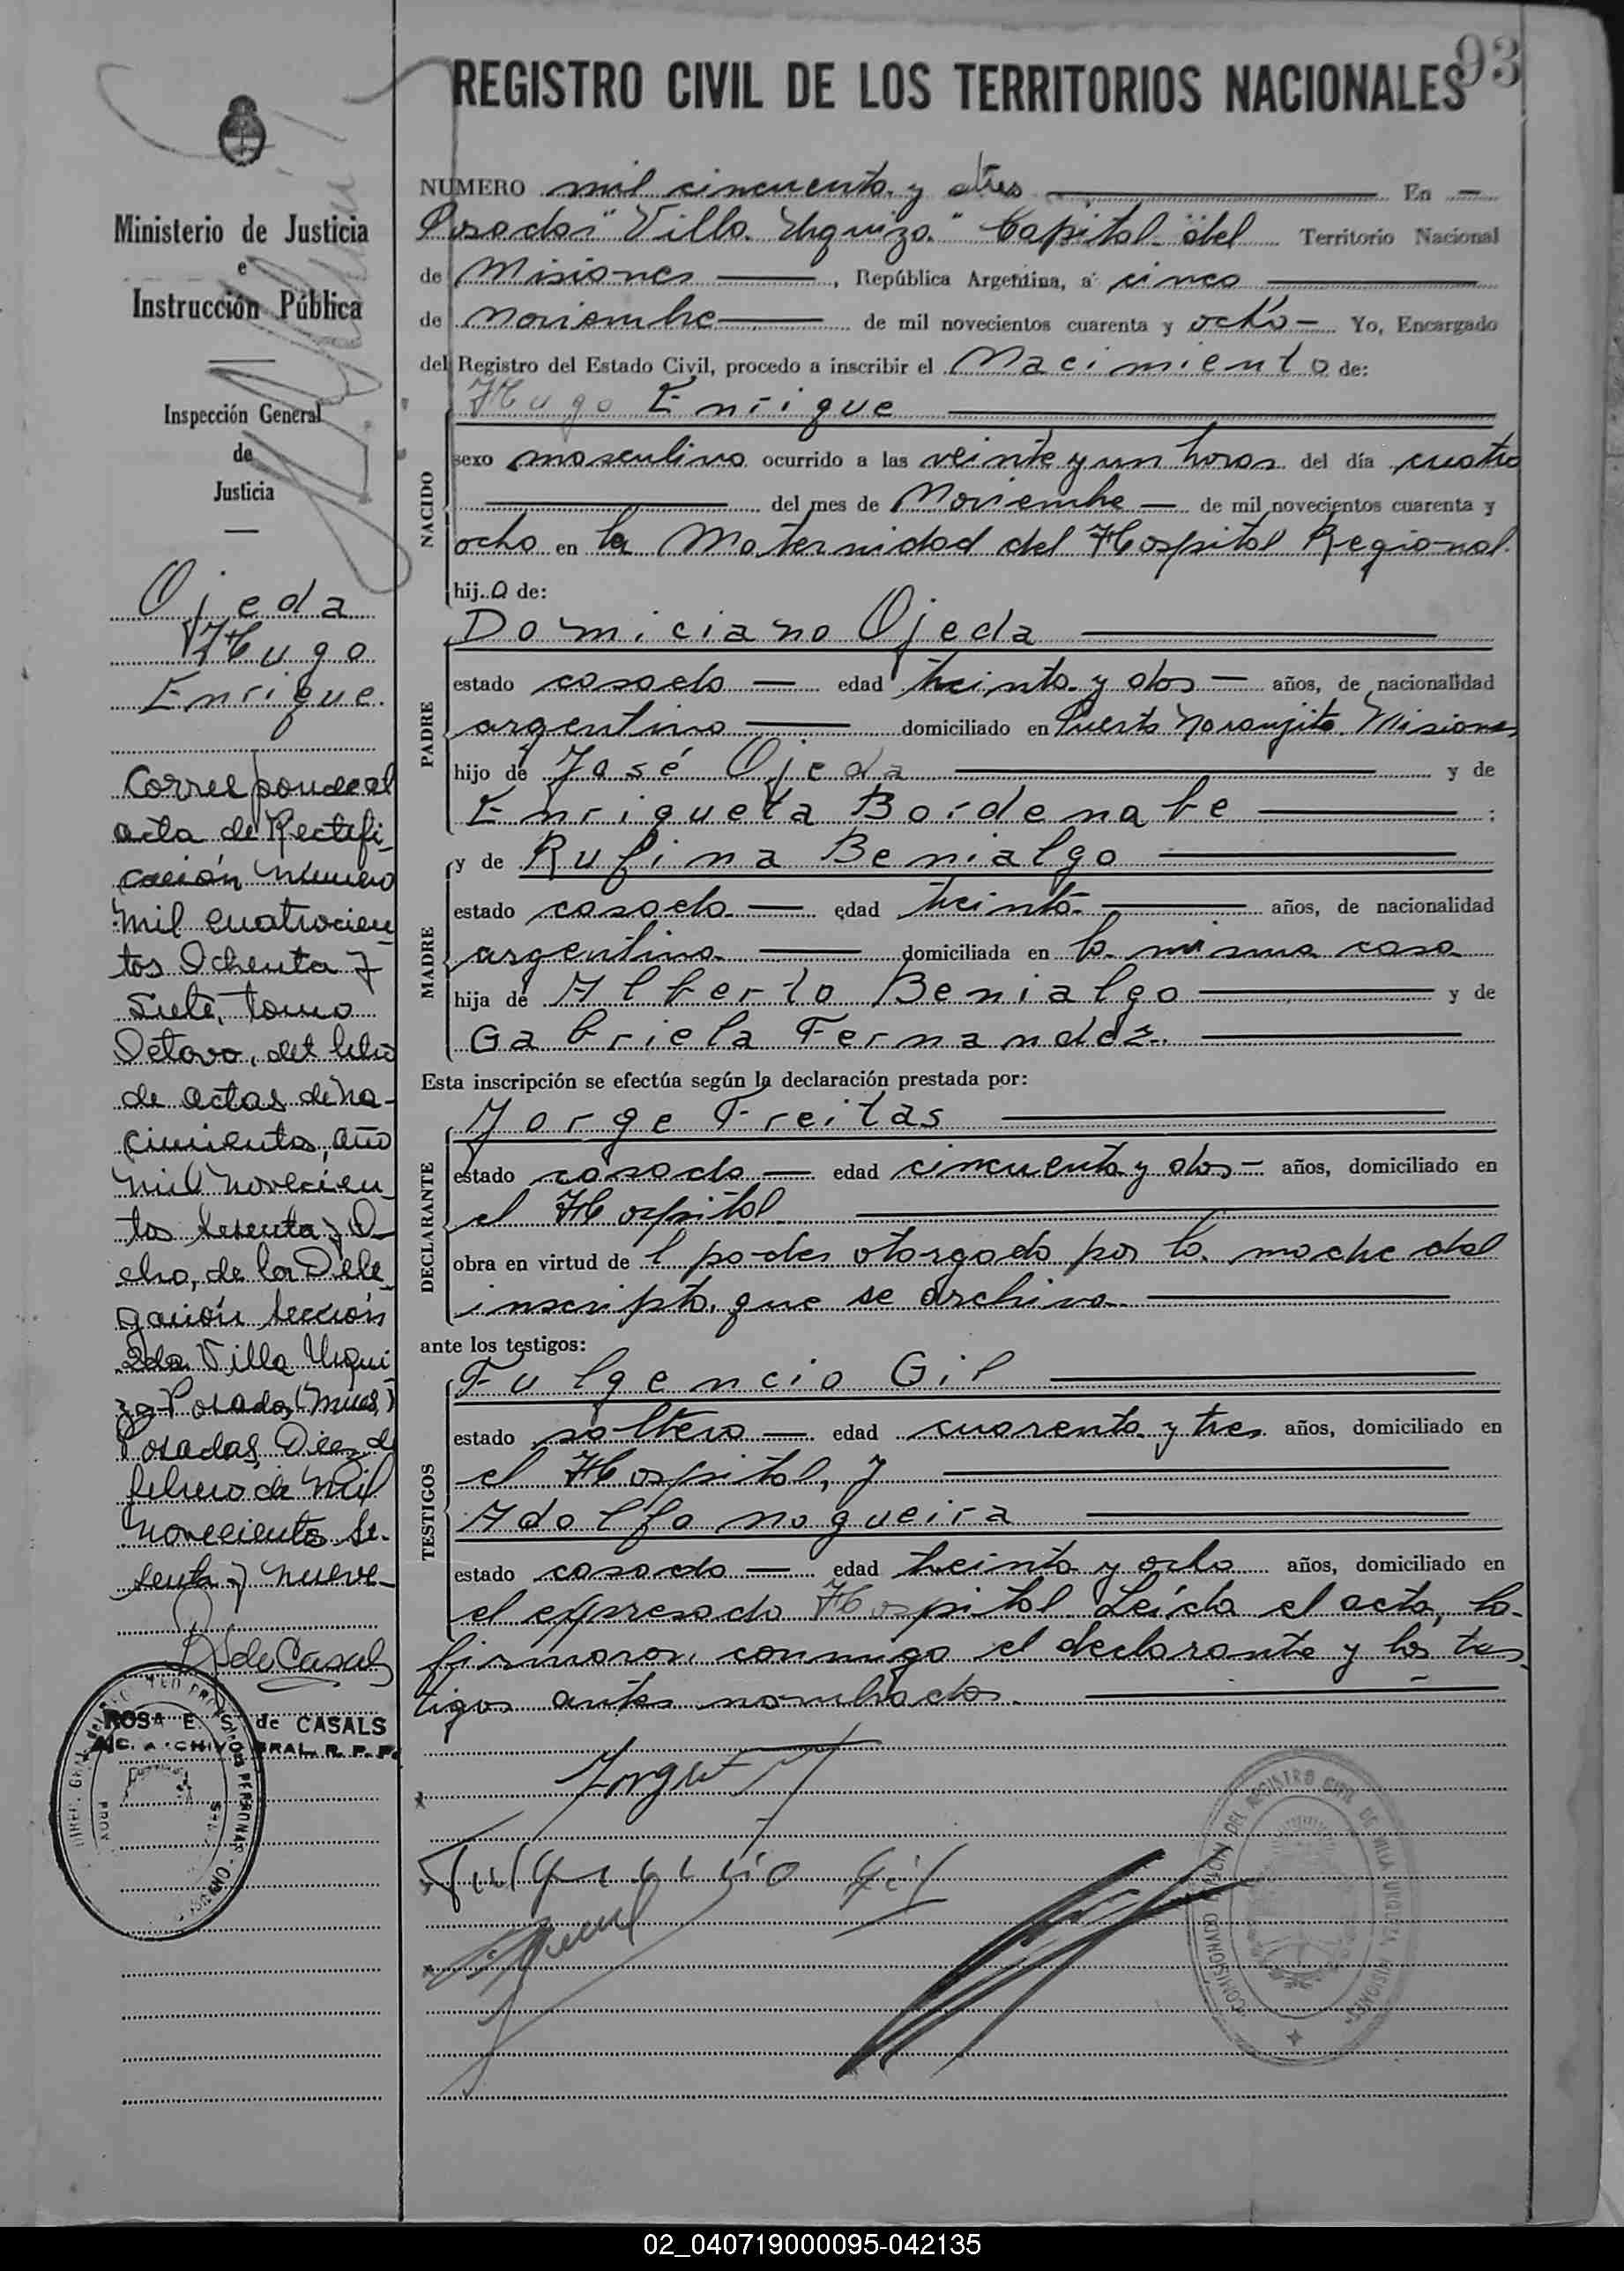 93
REGISTRO CIVIL DE LOS TERRITORIOS NACIONALES
Ministerio de Justicia
e
Instrucción Pública
Inspección General
de
Justicia
Ojeda
Hugo
Enrique.
Corresponde al
acta de Rectifi-
cación número
mil cuatrocien-
tos Ochenta y
Siete, tomo
Octavo, del libro
de actas de na-
cimientos, año
mil novecien-
tos sesenta y O-
cho, de la Dele-
gación Sección
2da Villa Urqui-
za Posadas (Mnes.)
Posadas, Diez de
febrero de Mil
novecientos Se-
senta y nueve-
R S de Casals
ROSA E. S. de CASALS
NUMERO mil cincuenta y tres En
Posadas "Villa Urquiza" Capital del Territorio Nacional
de Misiones, República Argentina, a cinco
de Noviembre de mil novecientos cuarenta y ocho Yo, Encargado
del Registro del Estado Civil, procedo a inscribir el Nacimiento de:
Hugo Enrique
NACIDO
sexo masculino ocurrido a las veinte y un horas del día cuatro
del mes de Noviembre de mil novecientos cuarenta y
ocho en la Maternidad del Hospital Regional
hijo de:
PADRE
Domiciano Ojeda
estado casado edad treinta y dos años, de nacionalidad
argentino domiciliado en Puerto Naranjito Misiones
hijo de José Ojeda y de
Enriqueta Bordenabe ;
MADRE
y de Rufina Benialgo
estado casada edad treinta años, de nacionalidad
argentina domiciliada en la misma casa
hija de Alberto Benialgo y de
Gabriela Fernandez.
Esta inscripción se efectúa según la declaración prestada por:
DECLARANTE
Jorge Freitas
estado casado edad cincuenta y dos años, domiciliado en
el Hospital
obra en virtud del poder otorgado por la madre del
inscripto, que se archiva.
ante los testigos:
TESTIGOS
Fulgencio Gil
estado soltero edad cuarenta y tres años, domiciliado en
el Hospital, y
Adolfo nogueira
estado casado edad treinta y ocho años, domiciliado en
el expresado Hospital. Leída el acta, la
firmaron conmigo el declarante y los tes-
tigos antes nombrados.
Jorge
Fulgencio Gil
COMISIONADO DEL REGISTRO CIVIL DE VILLA URQUIZA MISIONES
02_040719000095-042135